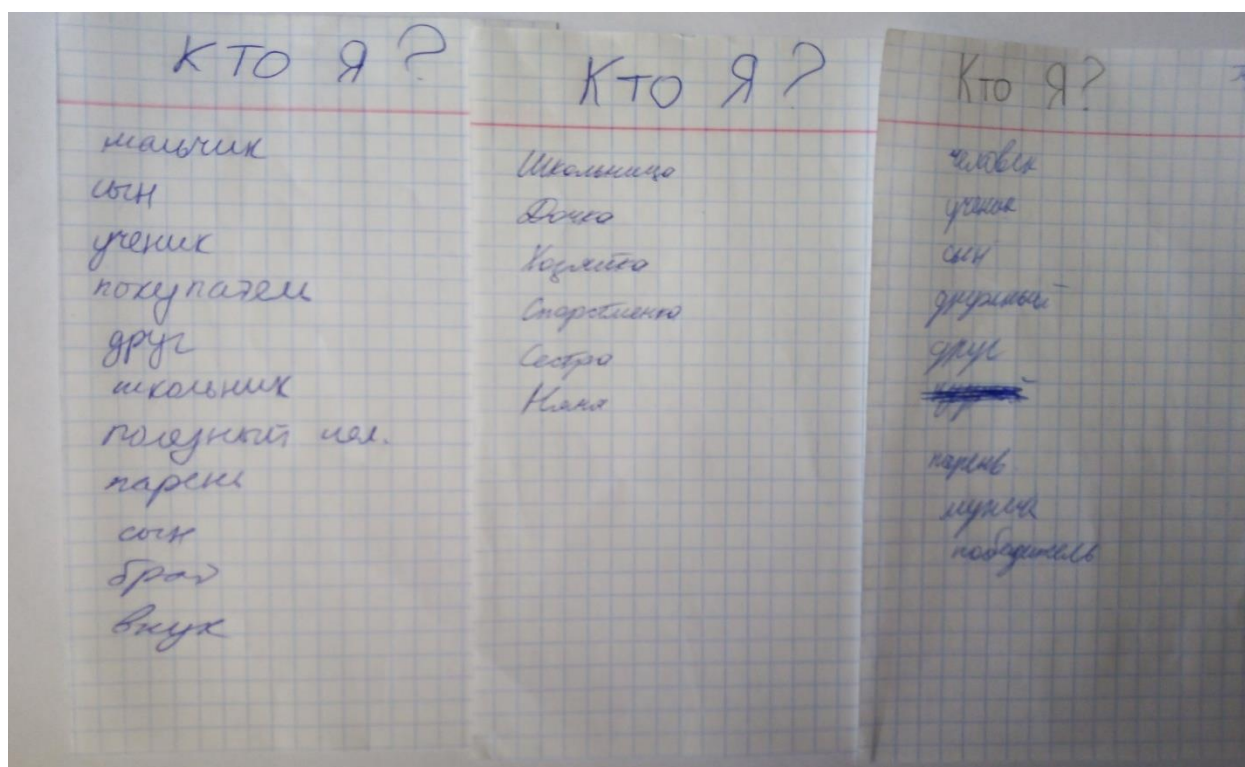 КТО Я?
мальчик
сын
ученик
покупатель
друг
школьник
полезный чел.
парень
сын
брат
внук
Кто Я?
Школьница
Дочка
Хозяйка
Спортсменка
Сестра
Няня
Кто Я?
человек
ученик
сын
дружный
друг
парень
мужчина
победитель